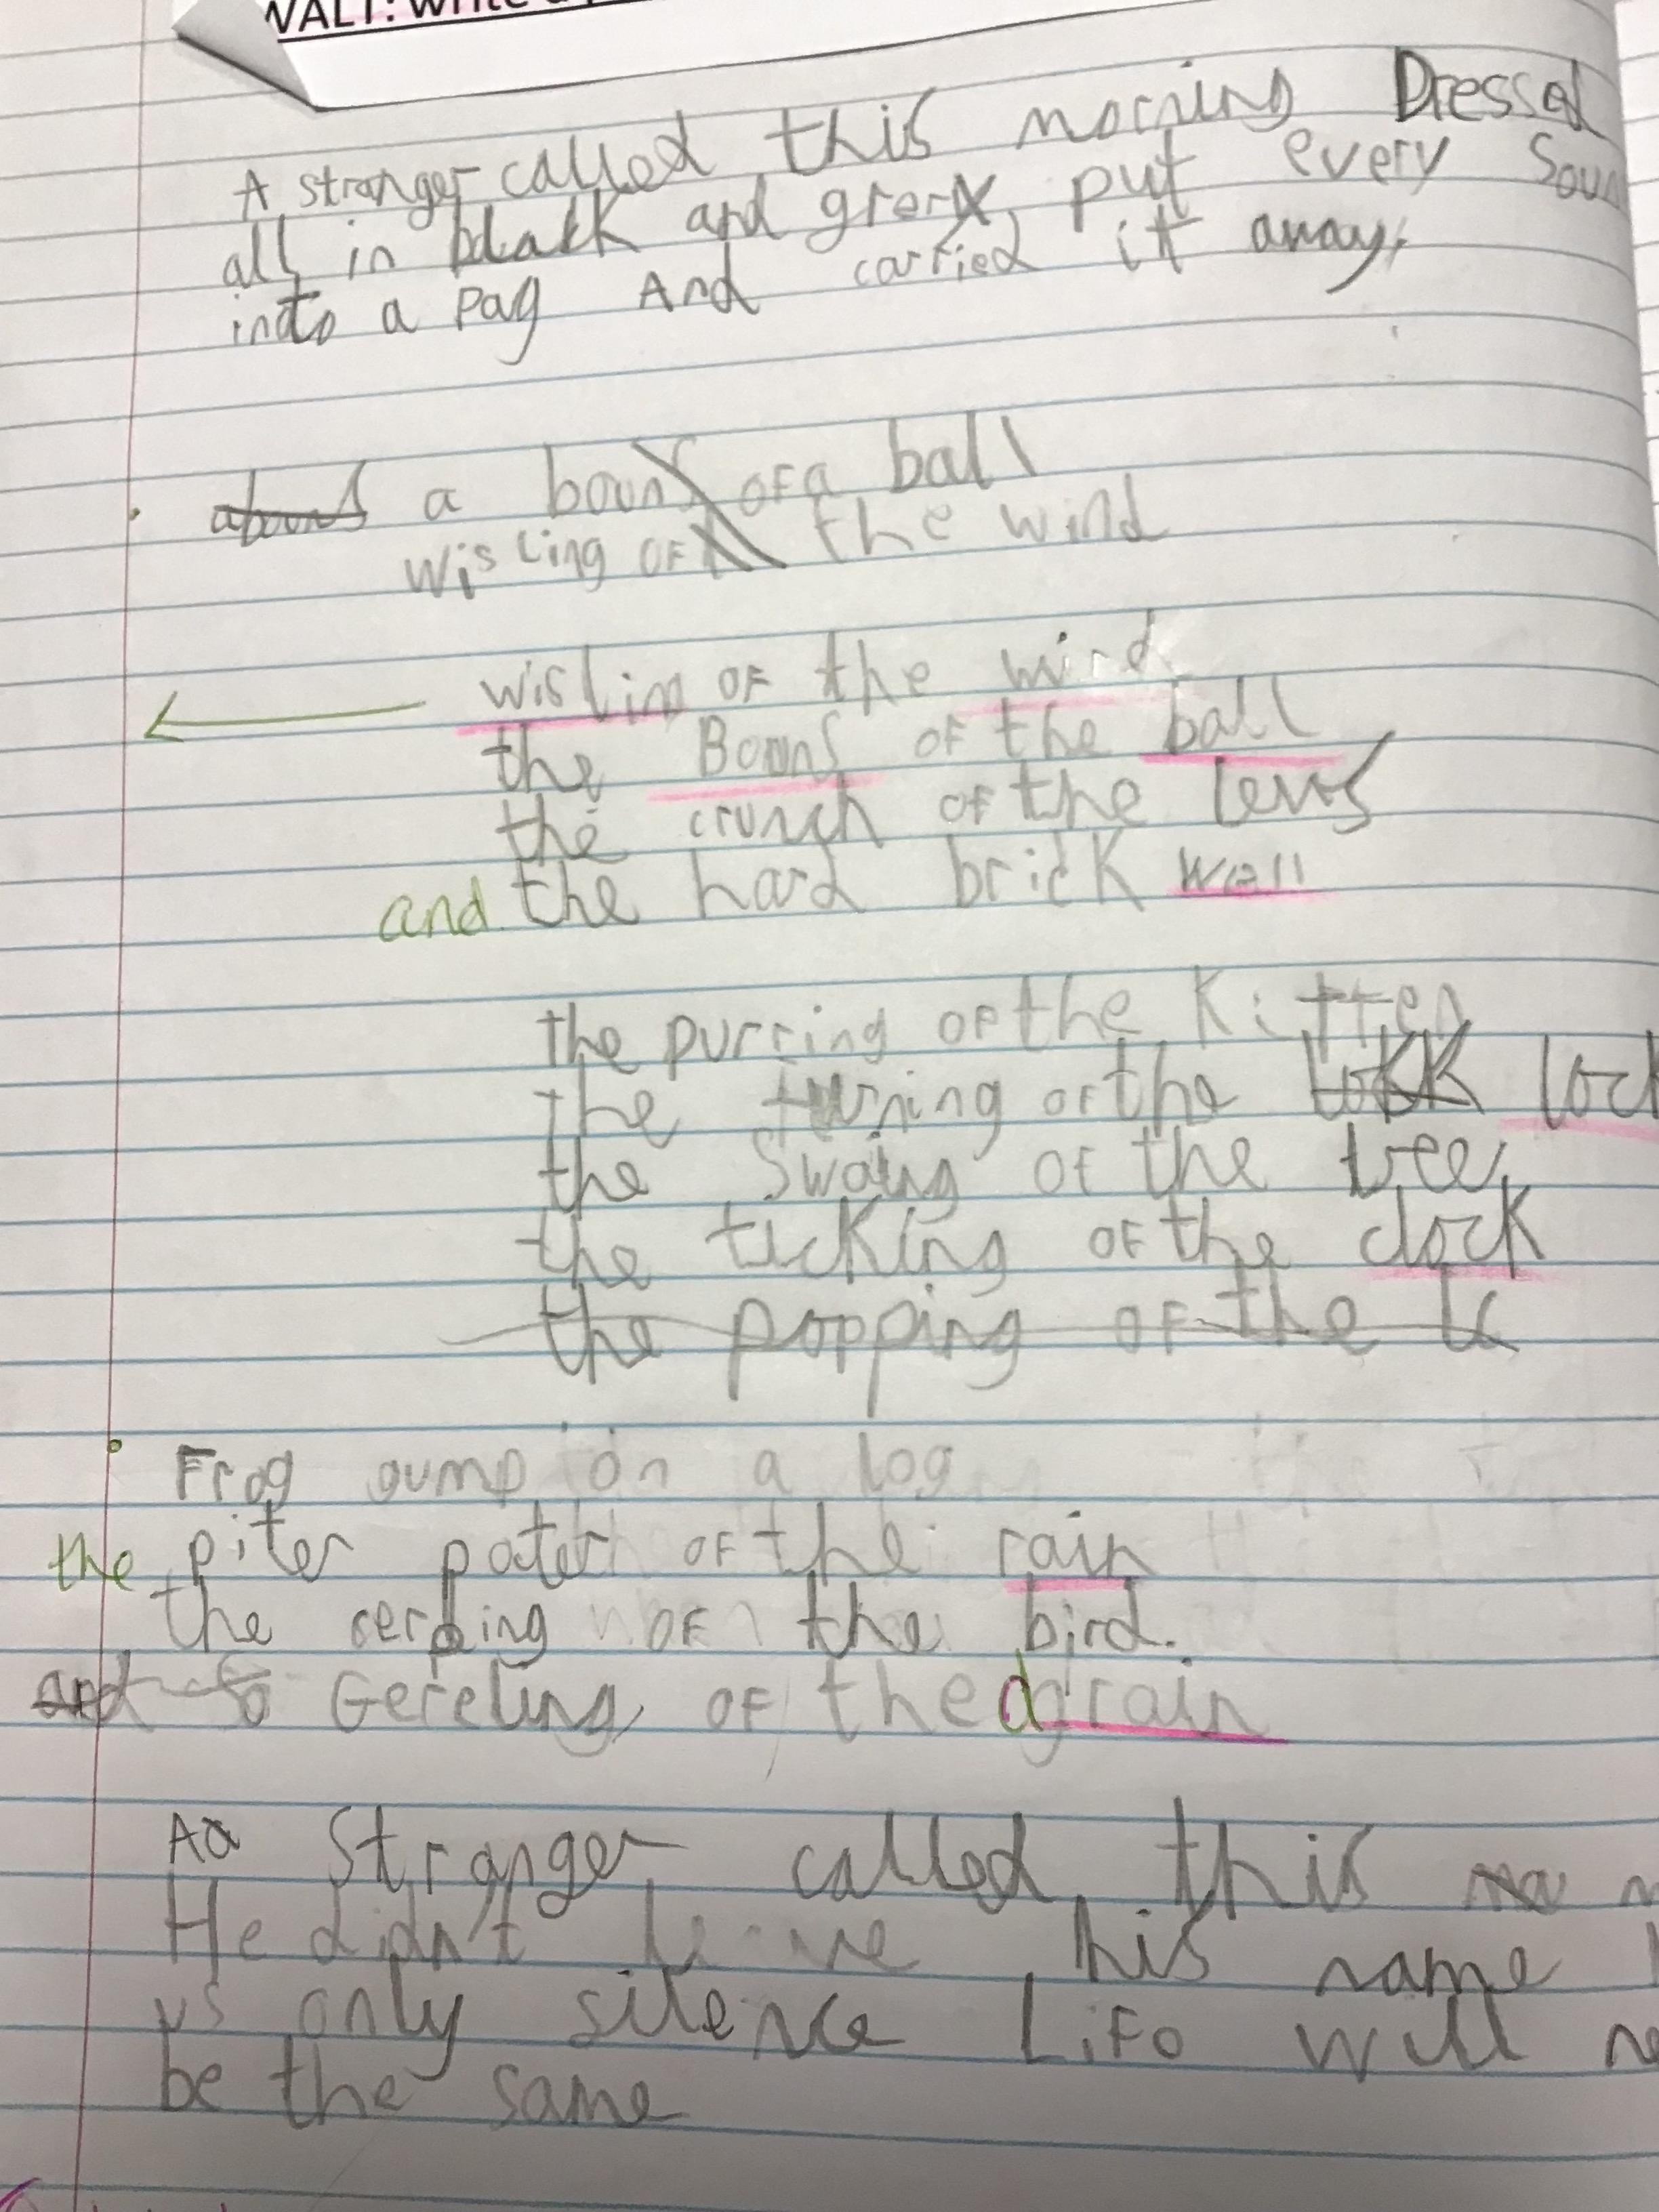 WALT: Write a
A stranger called this morning Dressed
all in black and grey put every Soun
into a pag And carried it away,
a bouns of a ball
Wisling of the wind
wisling of the wind
the Bouns of the ball
the crunch of the levs
and the hard brick wall
the purring of the Kitten
the turning of the lock
the Swaing of the tree
the ticking of the clock
the popping of the
Frog gump on a log
the piter pater of the rain
the cerping of the bird.
and so Gereling of the drain
A Stranger called this
He didn't leave his name
us only silence Life will
be the same